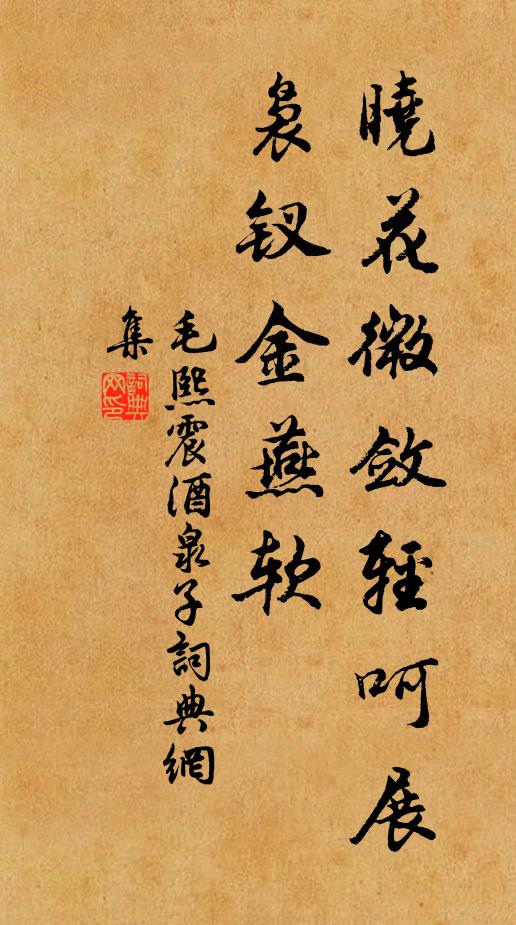 曉花微斂輕呵展
袅钗金燕软
毛熙震酒泉子詞典網
集
詞典網印